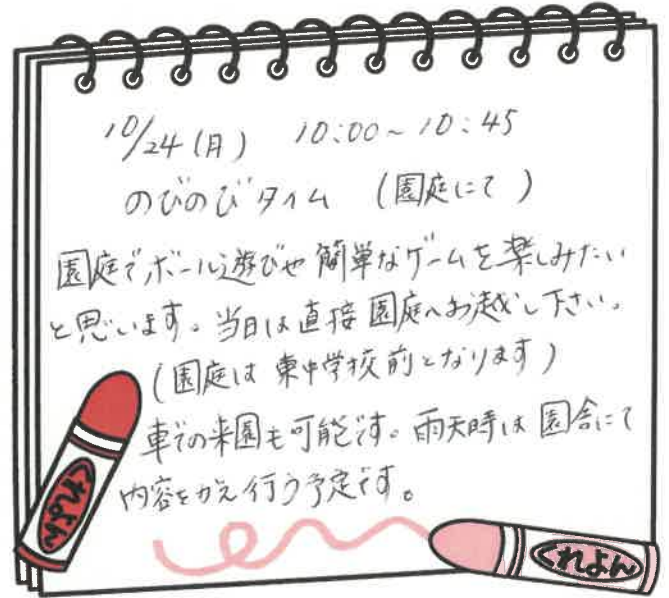 10/24(月) 10:00~10:45
のびのびタイム (園庭にて)
園庭でボール遊びや簡単なゲームを楽しみたい
と思います。当日は直接園庭へお越し下さい。
(園庭は東中学校前となります)
車での来園も可能です。雨天時は園舎にて
内容をかえ行う予定です。
くれよん
くれよん